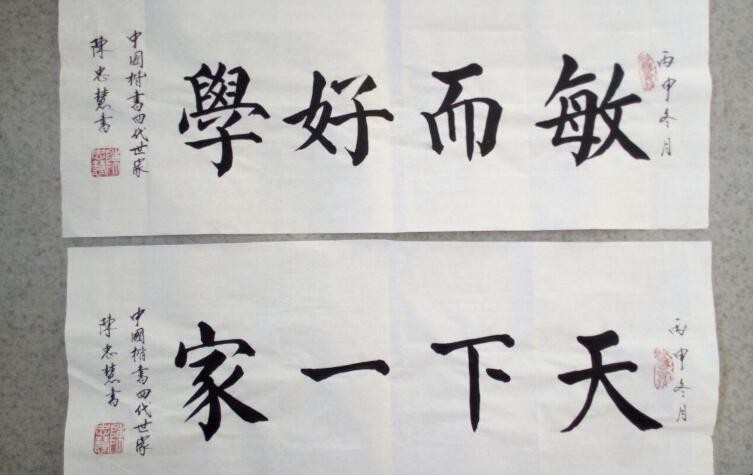 丙申冬月
敏而好學
中國楷書四代世家
陳忠慧書
丙申冬月
天下一家
中國楷書四代世家
陳忠慧書